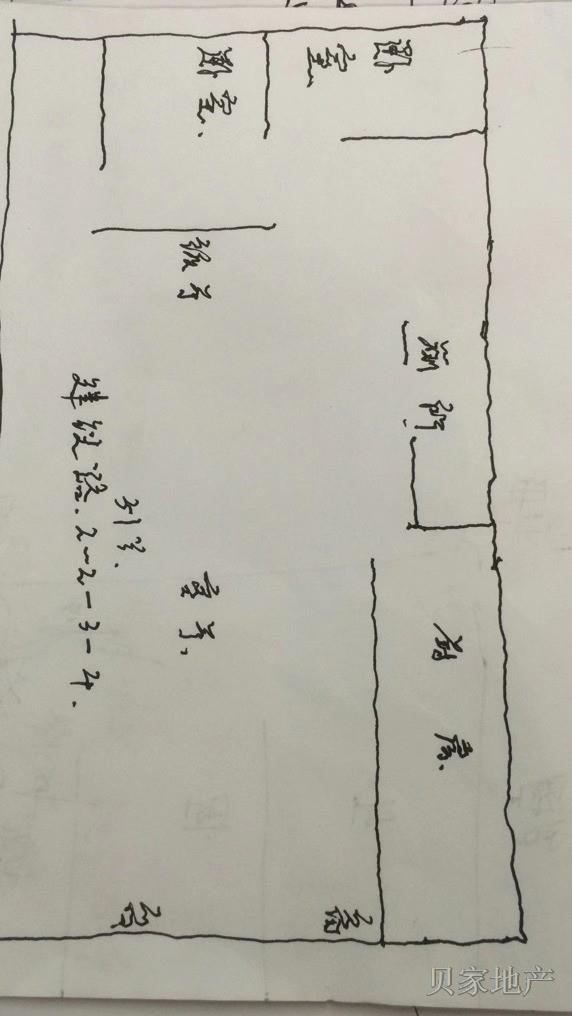 卧室、
卧室
饭厅
厕所
31号.
建设路.2-2-3-4.
客厅、
厨房、
贝家地产